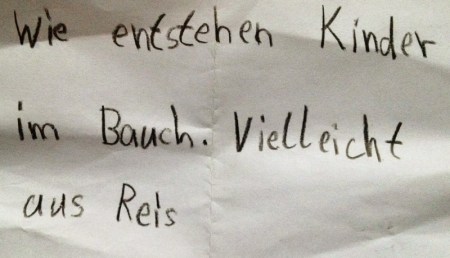 Wie entstehen Kinder
im Bauch. Vielleicht
aus Reis